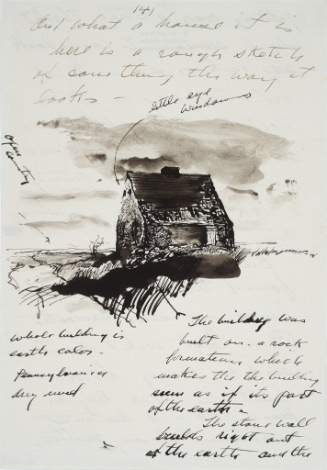 141
And what a house it is
here is a rough sketch
of some thing the way it
looks -
little eye
windows
open
country
whole building is
earth color.
Pennsylvania
dry mud
The building was
built on a rock
formation which
makes the the building
seem as if its part
of the earth -
The stone wall
builds right out
of the earth and the